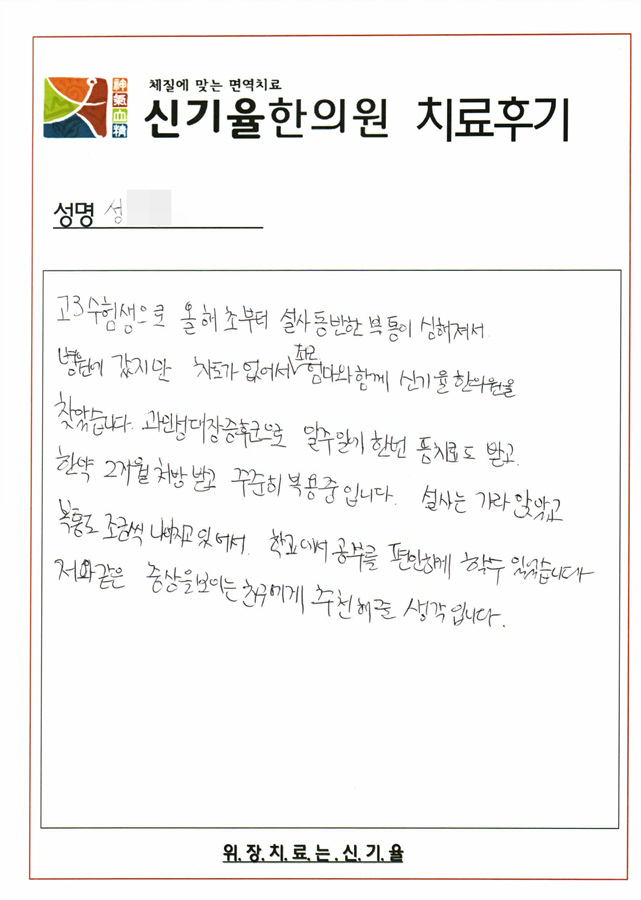 체질에 맞는 면역치료
神氣血精
신기율한의원 치료후기
성명 성
고3 수험생으로 올해 초부터 설사 동반한 복통이 심해져서
병원에 갔지만 차도가 없어서 엄마와 함께 신기율한의원을
찾았습니다. 과민성대장증후군으로 일주일에 한번 통치료도 받고
한약 2개월 처방 받고 꾸준히 복용중 입니다. 설사는 가라앉았고
복통도 조금씩 나아지고 있어서. 학교에서 공부를 편안하게 할수 있었습니다
저와 같은 증상을 보이는 친구에게 추천해줄 생각입니다.
위.장.치.료.는.신.기.율